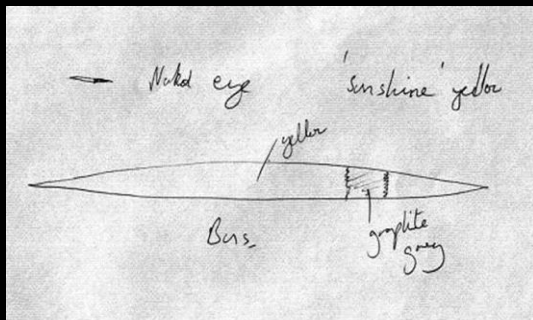 Naked eye
'sunshine' yellow
yellow
Bins.
graphite
grey